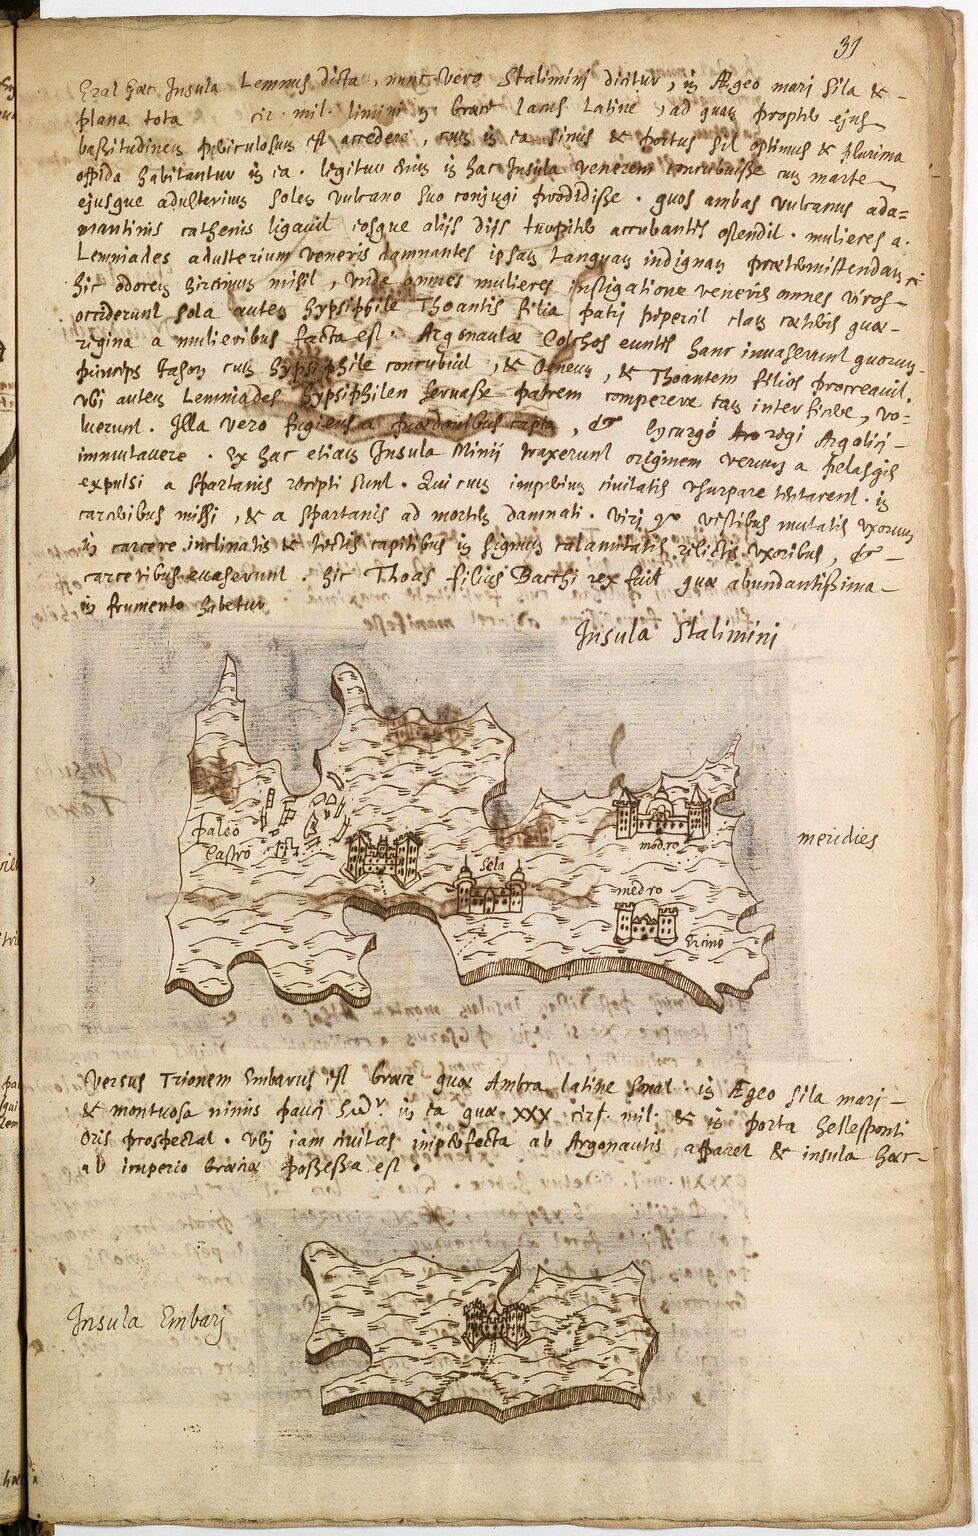 31
Erat haec Insula Lemnus dicta, nunc vero Stalimini dicitur, in Ægeo mari sita &
plana tota cir. mil. limini Graece lacus Latine, ad quam propter ejus
bassitudinem periculosum est accedere, cum in ea sinus & portus sit optimus & plurima
oppida habitantur in ea. legitur enim in hac Insula venerem concubuisse cum marte
ejusque adulterium solem vulcano suo conjugi prodidisse. quos ambas vulcanus ada=
mantinis cathenis ligavit eosque alijs dijs turpiter accubantes ostendit. mulieres a.
Lemniades adulterium veneris damnantes ipsam tanquam indignam praetermittendam
hic odorem hircinum misit, unde omnes mulieres instigatione veneris omnes viros
occiderunt sola autem hypsiphile Thoantis filia patri pepercit clam caeteris quae
regina a mulieribus facta est. Argonautae Colchos euntes hanc invaserunt quorum
princeps Iason cum hypsiphile concubuit, & Oeneum, & Thoantem filios procreavit.
Ubi autem Lemniades hypsiphilen servasse patrem comperere eam interficere, vo=
luerunt. Illa vero fugiens a praedonibus capta, & lycurgo regi Argolici
immutavere. Ex hac etiam Insula Minij traxerunt originem verum a pelasgis
expulsi a spartanis recepti sunt. Qui cum imperium civitatis usurpare tentarent. in
carceribus missi, & a spartanis ad mortem damnati. viri vestibus mutatis uxorum
in carcere inclinatis & tectis capitibus in signum calamitatis relictis uxoribus, &
carceribus evaserunt. hic Thoas filius Bacchi rex fuit quae abundantissima
in frumento habetur
Insula Stalimini
paleo
Castro
Sela
modro
medro
Ercino
meridies
Versus Trionem Embarus est Graece quae Ambra latine sonat. in Ægeo sita mari
& montuosa nimis pauci in ea quae XXX cir. mil. & in porta hellesponti
oris prospectat. Ubj iam civitas imperfecta ab Argonautis apparet & insula haec
ab imperio Graeciae possessa est.
Insula Embarj